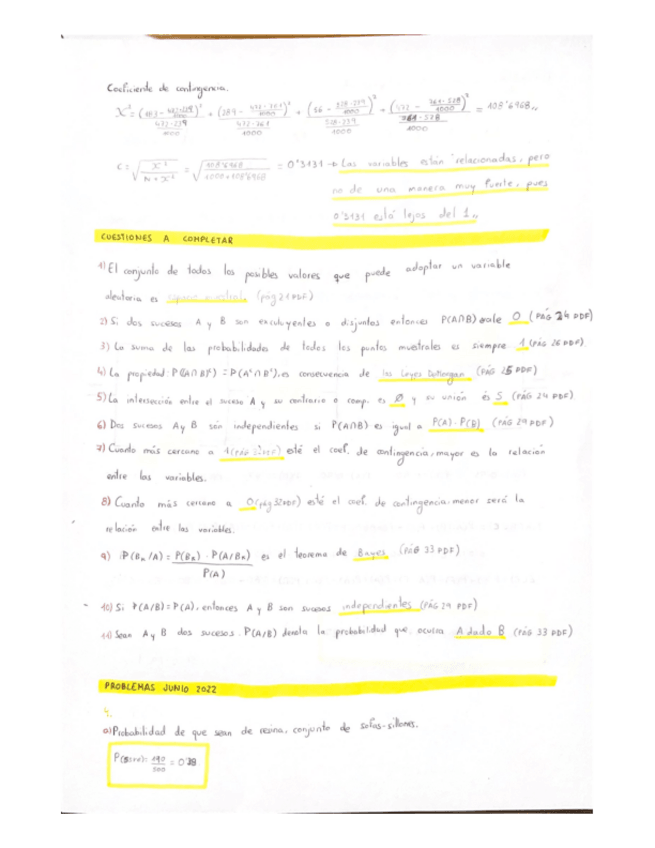 Coeficiente de contingencia.
X² = (183 - 472·239/1000)² / (472·239/1000) + (289 - 472·761/1000)² / (472·761/1000) + (56 - 528·239/1000)² / (528·239/1000) + (472 - 761·528/1000)² / (761·528/1000) = 108'6968,,
C = √(X²/(N + X²)) = √(108'6968/(1000+108'6968)) = 0'3131 → Las variables están relacionadas, pero
no de una manera muy fuerte, pues
0'3131 está lejos del 1,,
CUESTIONES A COMPLETAR
1) El conjunto de todos los posibles valores que puede adoptar un variable
aleatoria es espacio muestral (pág 21 PDF)
2) Si dos sucesos A y B son excluyentes o disjuntos entonces P(A∩B) vale 0 (PÁG 24 PDF)
3) La suma de las probabilidades de todos los puntos muestrales es siempre 1 (PÁG 26 PDF).
4) La propiedad: = P(Aᶜ∩Bᶜ), es consecuencia de las Leyes (PÁG 25 PDF)
5) La intersección entre el suceso A y su contrario o comp. es Ø y su unión es S (PÁG 24 PDF)
6) Dos sucesos A y B són independientes si P(A∩B) es igual a P(A)·P(B) (PÁG 29 PDF)
7) Cuanto más cercano a 1 (PÁG 32 PDF) esté el coef. de contingencia, mayor es la relación
entre las variables.
8) Cuanto más cercano a 0 (pág 32 PDF) esté el coef. de contingencia, menor será la
relación entre las variables.
9) P(Bn/A) = P(Bn) · P(A/Bn) / P(A) es el teorema de Bayes (PÁG 33 PDF)
10) Si P(A/B) = P(A), entonces A y B son sucesos independientes (PÁG 29 PDF)
11) Sean A y B dos sucesos. P(A/B) denota la probabilidad que ocurra A dado B (PÁG 33 PDF)
PROBLEMAS JUNIO 2022
4.
a) Probabilidad de que sean de resina, conjunto de sofas-sillones.
190/500 = 0'38